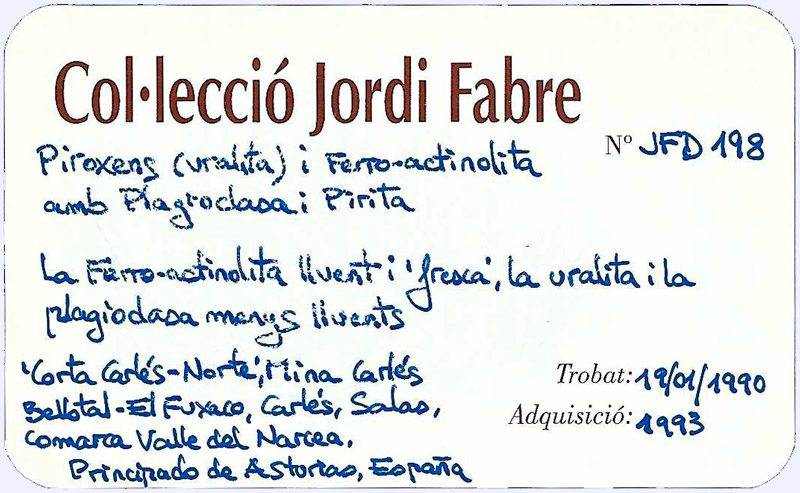 Col·lecció Jordi Fabre
Nº JFD 198
Piroxens (uralita) i Ferro-actinolita
amb Plagioclasa i Pirita
La Ferro-actinolita lluent i 'fresca', la uralita i la
plagioclasa menys lluents
'Corta Carlés-Norte', Mina Carlés
Bellotal-El Fuxaco, Carlés, Salas,
Comarca Valle del Narcea,
Principado de Asturias, España
Trobat: 19/01/1990
Adquisició: 1993